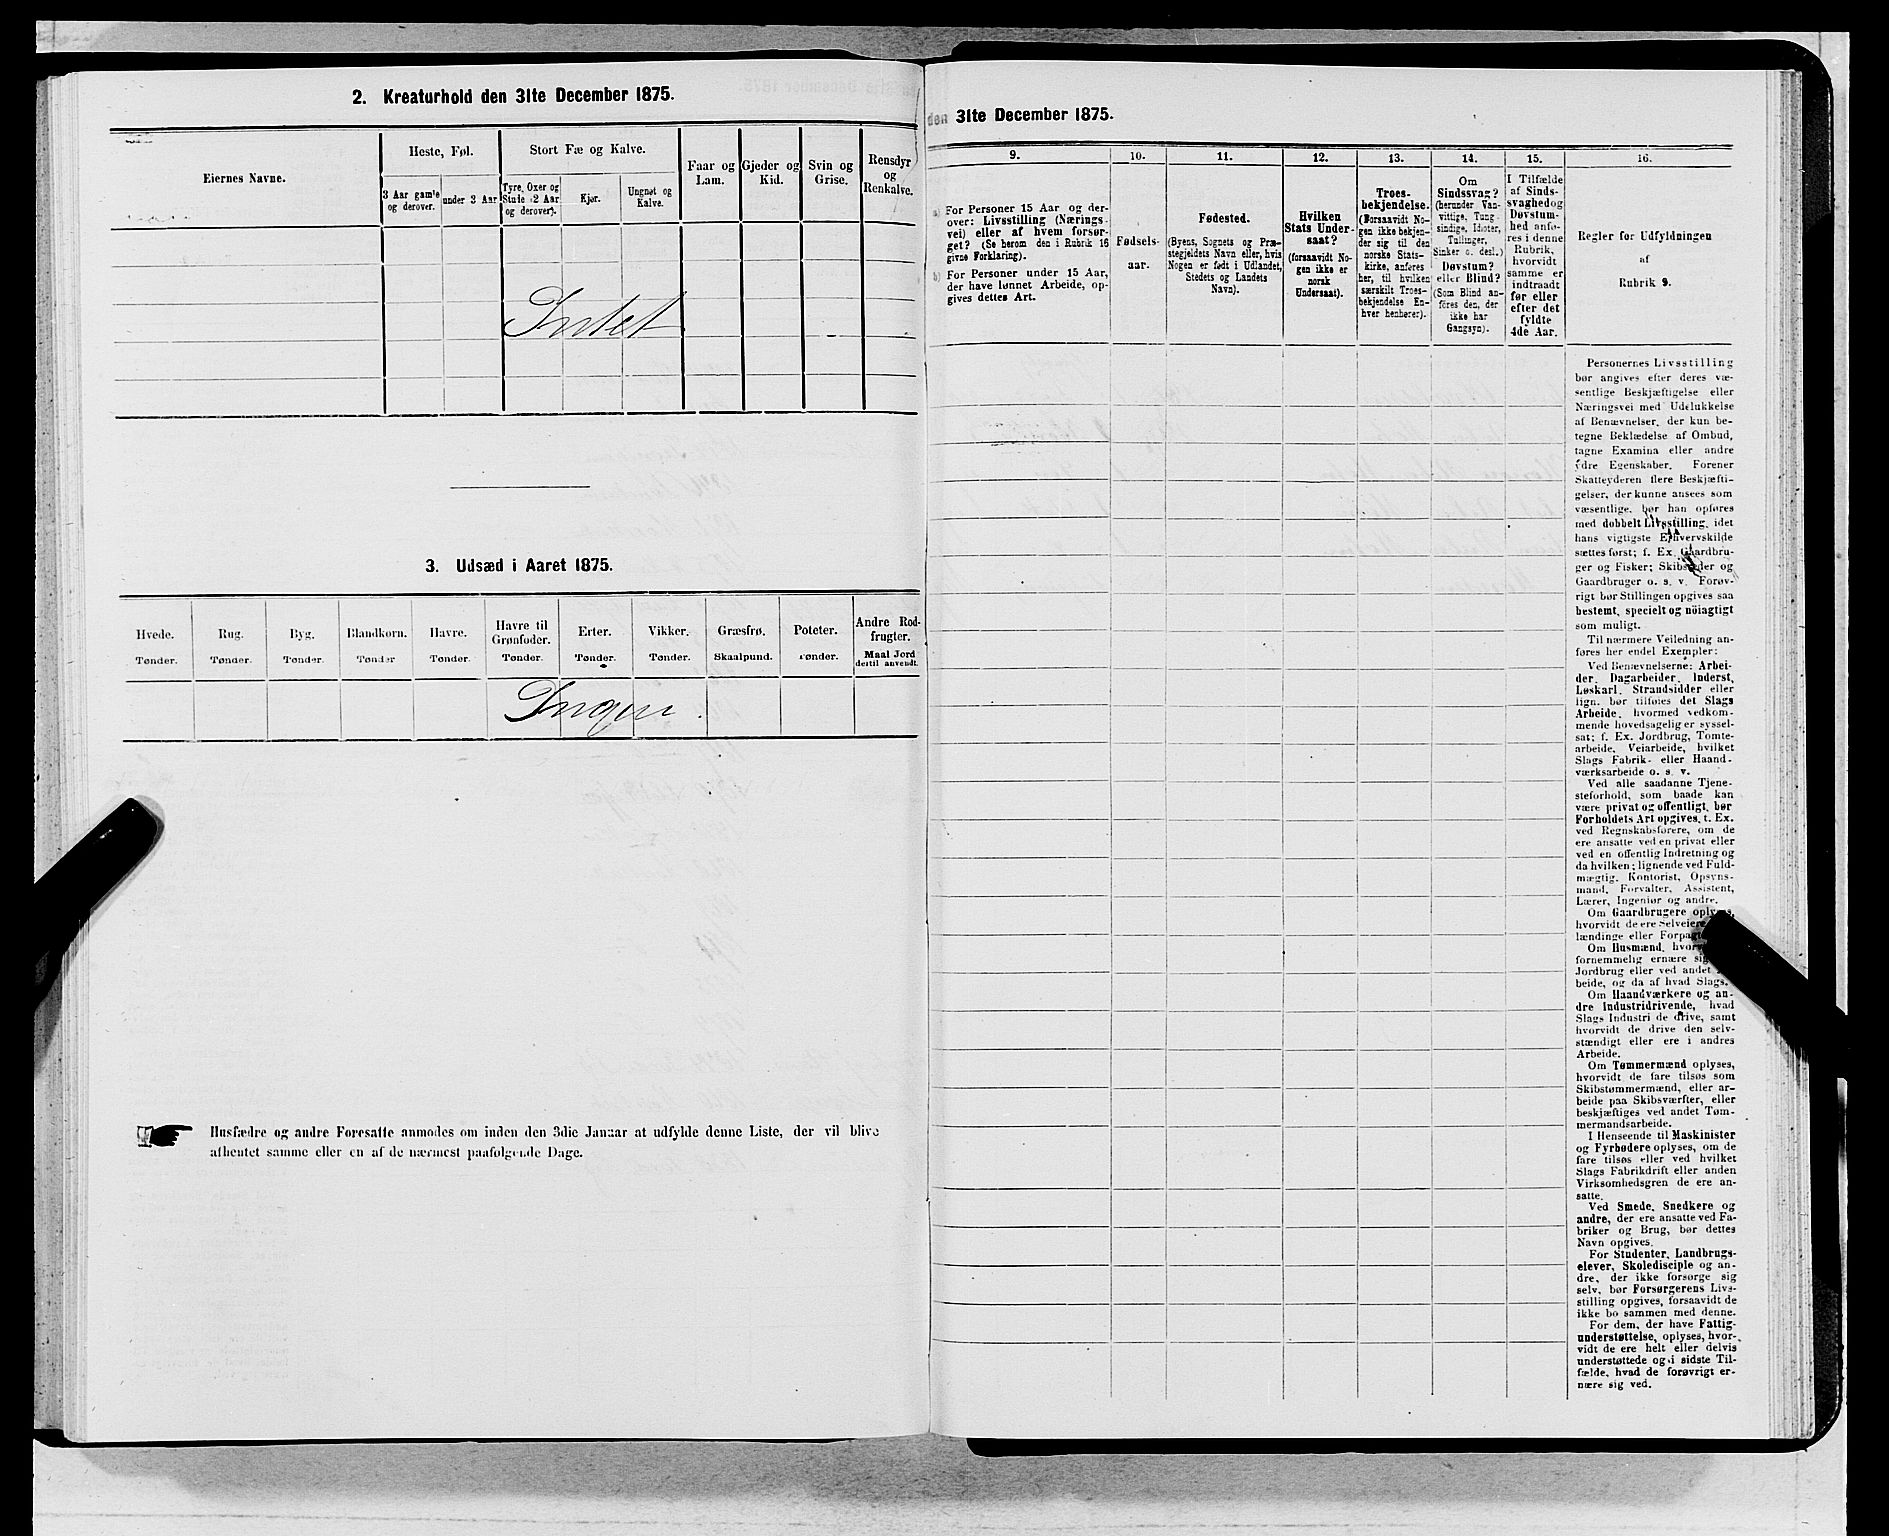 2. Kreaturhold den 31te December 1875.
Eiernes Navne.
Heste, Føl.
3 Aar gamle
og derover.
under 3 Aar
Stort Fæ og Kalve.
Tyre, Oxer og
Stude (2 Aar
og derover).
Kjør.
Ungnøt og
Kalve.
Faar og
Lam.
Gjeder og
Kid.
Svin og
Grise.
Rensdyr
og
Renkalve.
Intet
3. Udsæd i Aaret 1875.
Hvede.
Tønder.
Rug.
Tønder.
Byg.
Tønder.
Blandkorn.
Tønder
Havre.
Tønder.
Havre til
Grønfoder.
Tønder.
Erter.
Tønder.
Vikker.
Tønder.
Græsfrø.
Skaalpund.
Poteter.
Tønder.
Andre Rod-
frugter.
Maal Jord
dertil anvendt.
Ingen.
Husfædre og andre Foresatte anmodes om inden den 3die Januar at udfylde denne Liste, der vil blive
afhentet samme eller en af de nærmest paafølgende Dage.
den 31te December 1875.
9.
a) For Personer 15 Aar og der-
over: Livsstilling (Nærings-
vei) eller af hvem forsør-
get? (Se herom den i Rubrik 16
givne Forklaring).
b) For Personer under 15 Aar,
der have lønnet Arbeide, op-
gives dettes Art.
10.
Fødsels-
aar.
11.
Fødested.
(Byens, Sognets og Præ-
stegjeldets Navn eller, hvis
Nogen er født i Udlandet,
Stedets og Landets
Navn).
12.
Hvilken
Stats Under-
saat?
(forsaavidt No-
gen ikke er
norsk
Undersaat).
13.
Troes-
bekjendelse.
(Forsaavidt No-
gen ikke bekjen-
der sig til den
norske Stats-
kirke, anføres
her, til hvilken
særskilt Troes-
bekjendelse En-
hver henhører).
14.
Om
Sindssvag?
(herunder Van-
vittige, Tung-
sindige, Idioter,
Tullinger,
Sinker o. desl.)
Døvstum?
eller Blind?
(Som Blind an-
føres den, der
ikke har
Gangsyn).
15.
I Tilfælde
af Sinds-
svaghed og
Døvstum-
hed anfø-
res i denne
Rubrik,
hvorvidt
samme er
indtraadt
før eller
efter det
fyldte
4de Aar.
16.
Regler for Udfyldningen
af
Rubrik 9.
Personernes Livsstilling
bør angives efter deres væ-
sentlige Beskjæftigelse eller
Næringsvei med Udelukkelse
af Benævnelser, der kun be-
tegne Beklædelse af Ombud,
tagne Examina eller andre
ydre Egenskaber. Forener
Skatteyderen flere Beskjæfti-
gelser, der kunne ansees som
væsentlige, bør han opføres
med dobbelt Livsstilling, idet
hans vigtigste Erhvervskilde
sættes først; f. Ex. Gaardbru-
ger og Fisker; Skibsreder og
Gaardbruger o. s. v. Forøv-
rigt bør Stillingen opgives saa
bestemt, specielt og nöiagtigt
som muligt.
Til nærmere Veiledning an-
føres her endel Exempler:
Ved Benævnelserne: Arbei-
der, Dagarbeider, Inderst,
Løskarl, Strandsidder eller
lign. bør tilføies det Slags
Arbeide, hvormed vedkom-
mende hovedsagelig er syssel-
sat; f. Ex. Jordbrug, Tomte-
arbeide, Veiarbeide, hvilket
Slags Fabrik- eller Haand-
værksarbeide o. s. v.
Ved alle saadanne Tjene-
steforhold, som baade kan
være privat og offentligt, bør
Forholdets Art opgives, t. Ex.
ved Regnskabsførere, om de
ere ansatte ved en privat eller
ved en offentlig Indretning og
da hvilken; lignende ved Fuld-
mægtig, Kontorist, Opsyns-
mand, Forvalter, Assistent,
Lærer, Ingeniør og andre.
Om Gaardbrugere oplyses,
hvorvidt de ere Selveiere,
lændinge eller
Om Husmænd,
fornemmelig ernære sig
Jordbrug eller ved andet
beide, og da af hvad Slags.
Om Haandværkere og an-
dre Industridrivende, hvad
Slags Industri de drive, samt
hvorvidt de drive den selv-
stændigt eller ere i andres
Arbeide.
Om Tømmermænd oplyses,
hvorvidt de fare tilsøs som
Skibstømmermænd, eller ar-
beide paa Skibsværfter, eller
beskjæftiges ved andet Tøm-
mermandsarbeide.
I Henseende til Maskinister
og Fyrbødere oplyses, om de
fare tilsøs eller ved hvilket
Slags Fabrikdrift eller anden
Virksomhedsgren de ere an-
satte.
Ved Smede, Snedkere og
andre, der ere ansatte ved Fa-
briker og Brug, bør dettes
Navn opgives.
For Studenter, Landbrugs-
elever, Skoledisciple og an-
dre, der ikke forsørge sig
selv, bør Forsørgerens Livs-
stilling opgives, forsaavidt de
ikke bo sammen med denne.
For dem, der have Fattig-
understøttelse, oplyses, hvor-
vidt de ere helt eller delvis
understøttede og i sidste Til-
fælde, hvad de forøvrigt er-
nære sig ved.